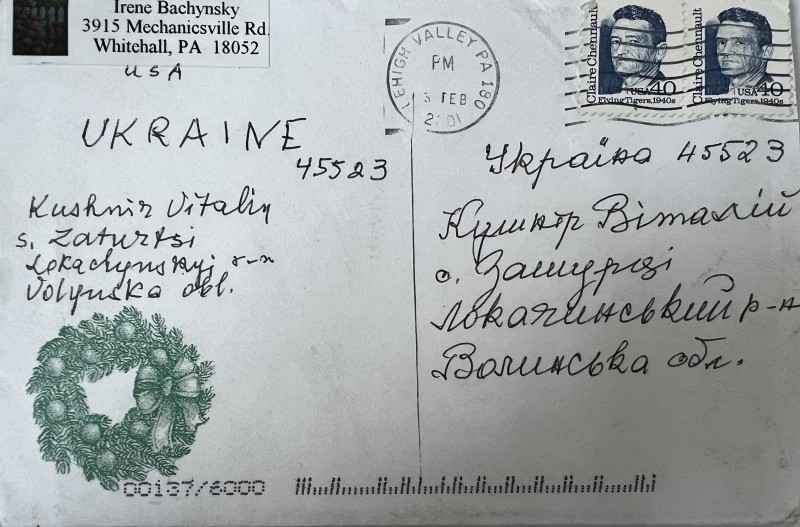 Irene Bachynsky
3915 Mechanicsville Rd.
Whitehall, PA 18052
USA
LEHIGH VALLEY PA 180
PM
3 FEB
2001
Claire Chennault
USA 40
Flying Tigers, 1940s
Claire Chennault
USA 40
Flying Tigers, 1940s
UKRAINE
45523
Kushnir Vitaliy
s. Zaturtsi
Lokachynskyj r-n
Volynska obl.
Україна 45523
Кушнір Віталій
с. Затурці
Локачинський р-н
Волинська обл.
00137/6000